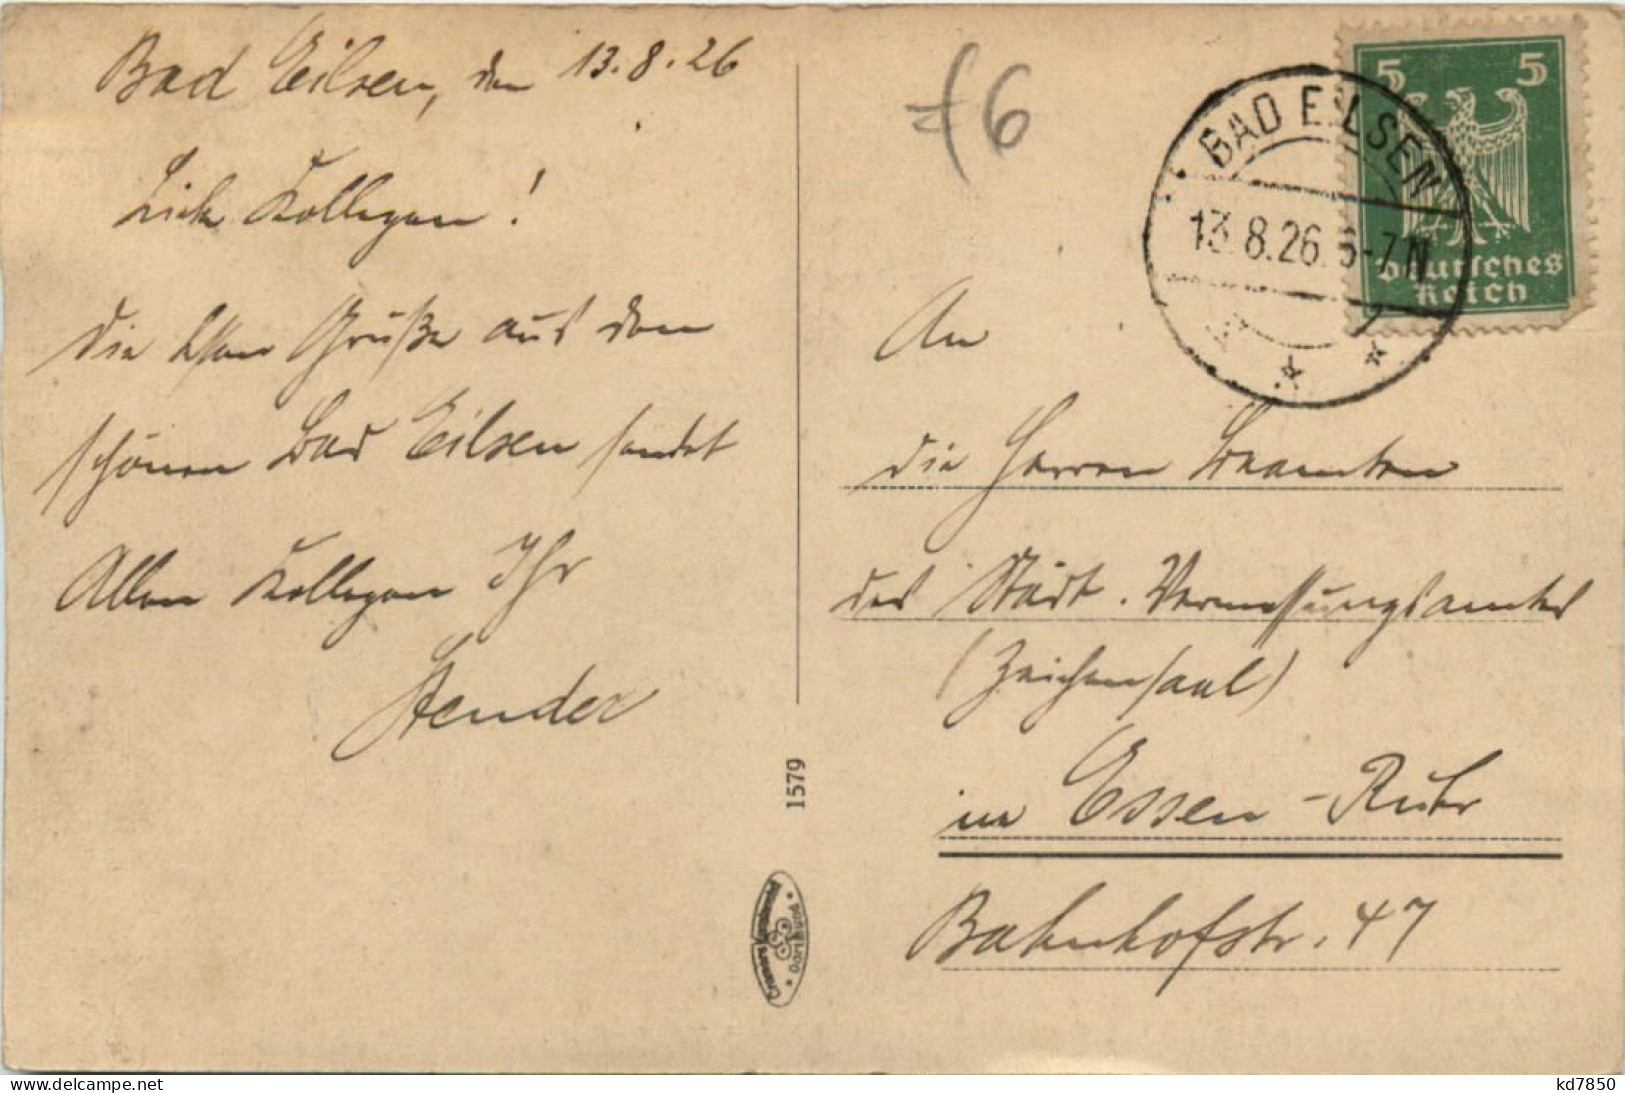 Bad Eilsen, den 13.8.26
Liebe Kollegen!
Die besten Grüße aus dem
schönen Bad Eilsen sendet
Allen Kollegen Ihr
Stender
f6
5 5
Deutsches
Reich
BAD EILSEN
13.8.26. 6-7 N
An
die Herren Beamten
des Städt. Vermessungsamtes
(Zeichensaal)
in Essen-Ruhr
Bahnhofstr. 47
1579
Dortmund
www.delcampe.net
kd7850